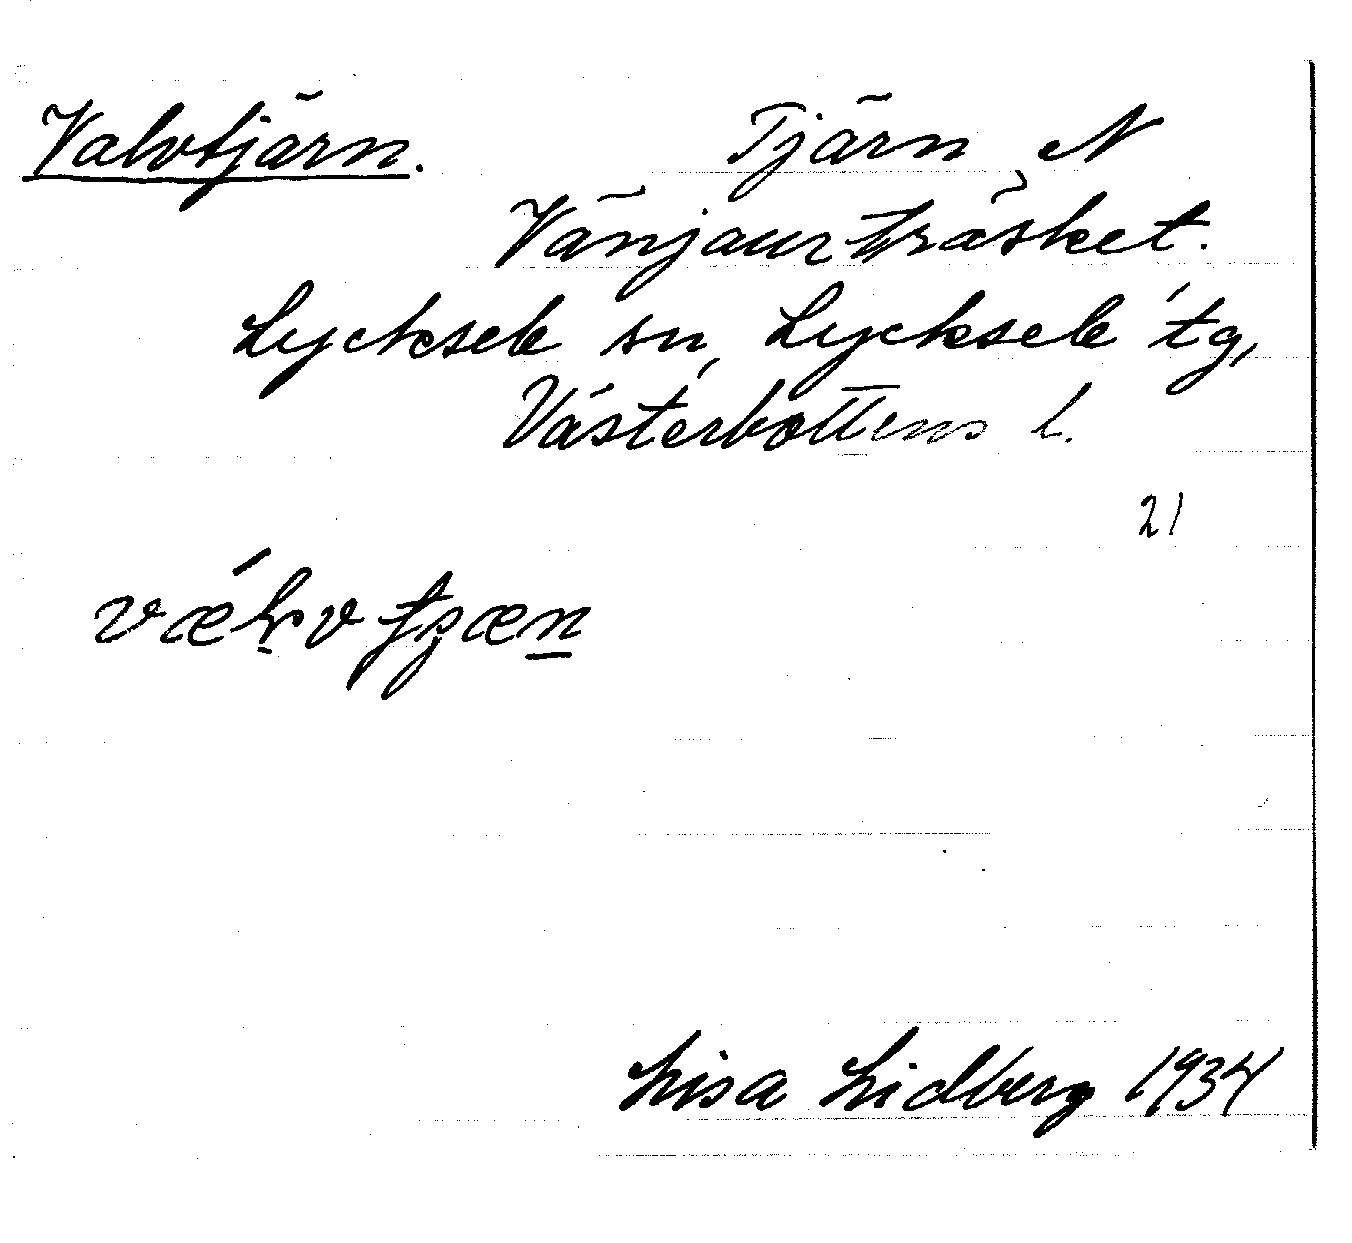 Valvtjärn. Tjärn N
Vänjaurträsket.
Lycksele sn, Lycksele tg,
Västerbottens l.
21
Lisa Lidberg 1934